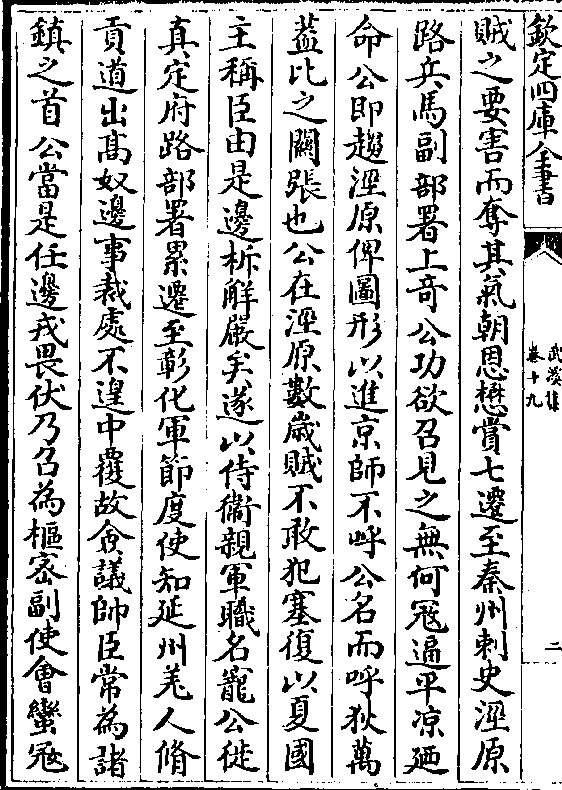 欽定四庫全書
武溪集
卷十九
二
賊之要害而奪其氣朝恩懋賞七遷至秦州刺史涇原
路兵馬副部署上竒公功欲召見之無何冦逼平凉廼
命公即趨涇原俾圖形以進京師不呼公名而呼狄萬
葢比之關張也公在涇原數歲賊不敢犯塞復以夏國
主稱臣由是邊柝解嚴矣遂以侍衞親軍職名寵公徙
真定府路部署累遷至彰化軍節度使知延州羌人脩
貢道出髙奴邊事裁處不遑中覆故僉議帥臣常為諸
鎮之首公當是任邊戎畏伏乃召為樞宻副使㑹蠻冦